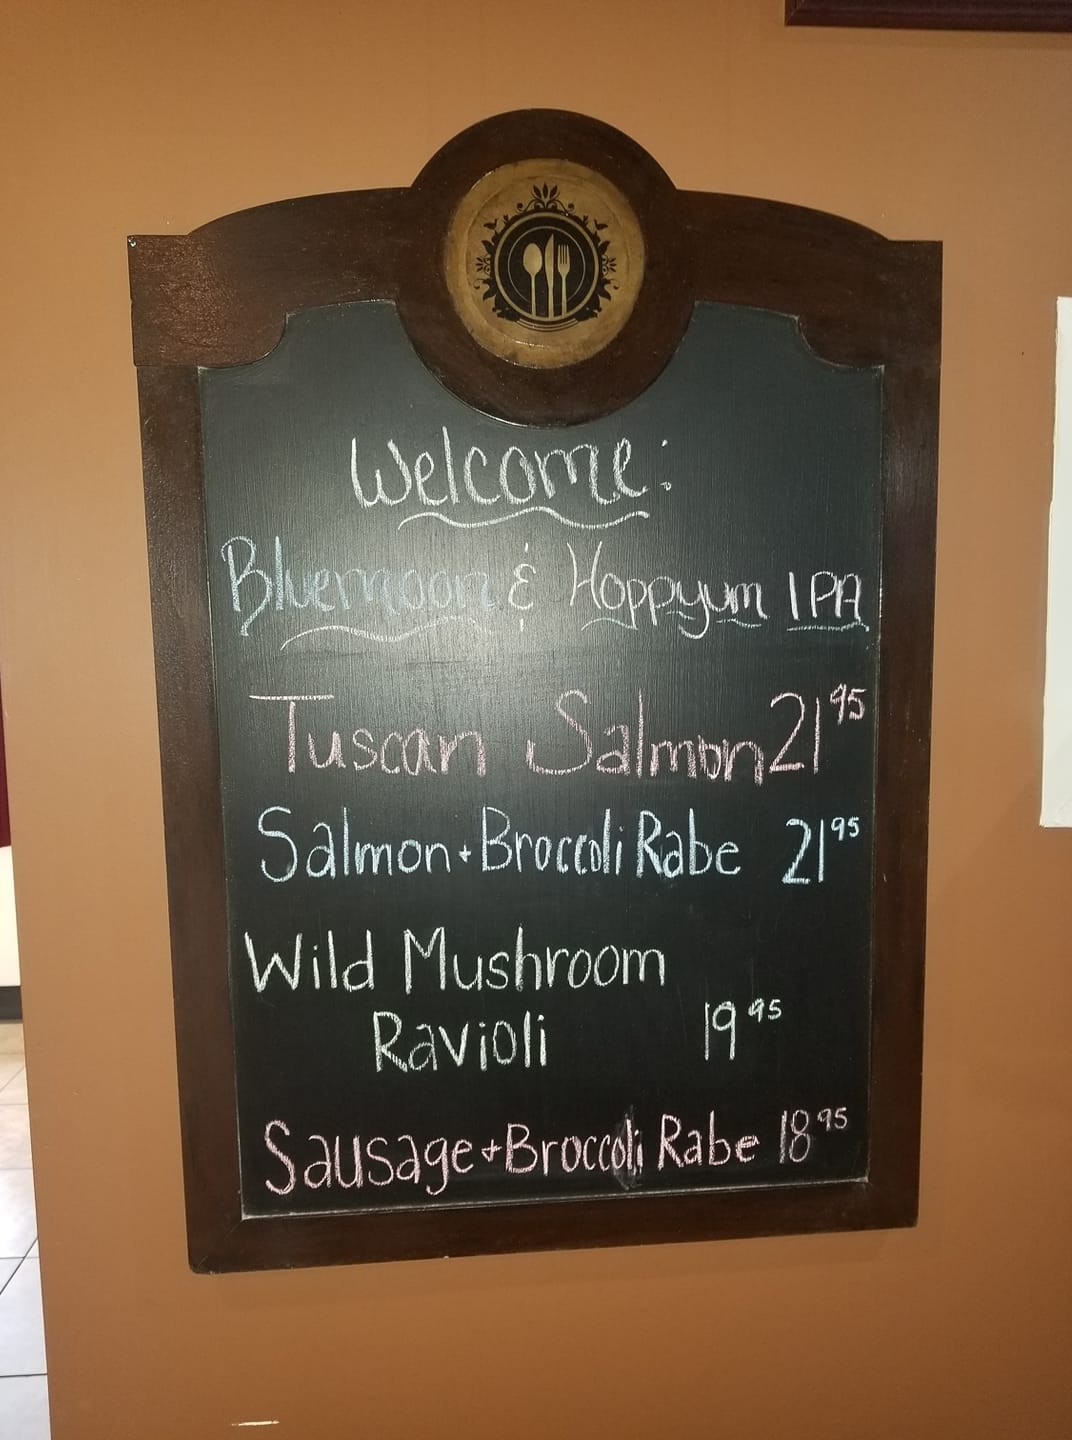 Welcome:
Bluemoon & Hoppyum IPA
Tuscan Salmon 21 95
Salmon + Broccoli Rabe 21 95
Wild Mushroom
Ravioli 19 95
Sausage + Broccoli Rabe 18 95